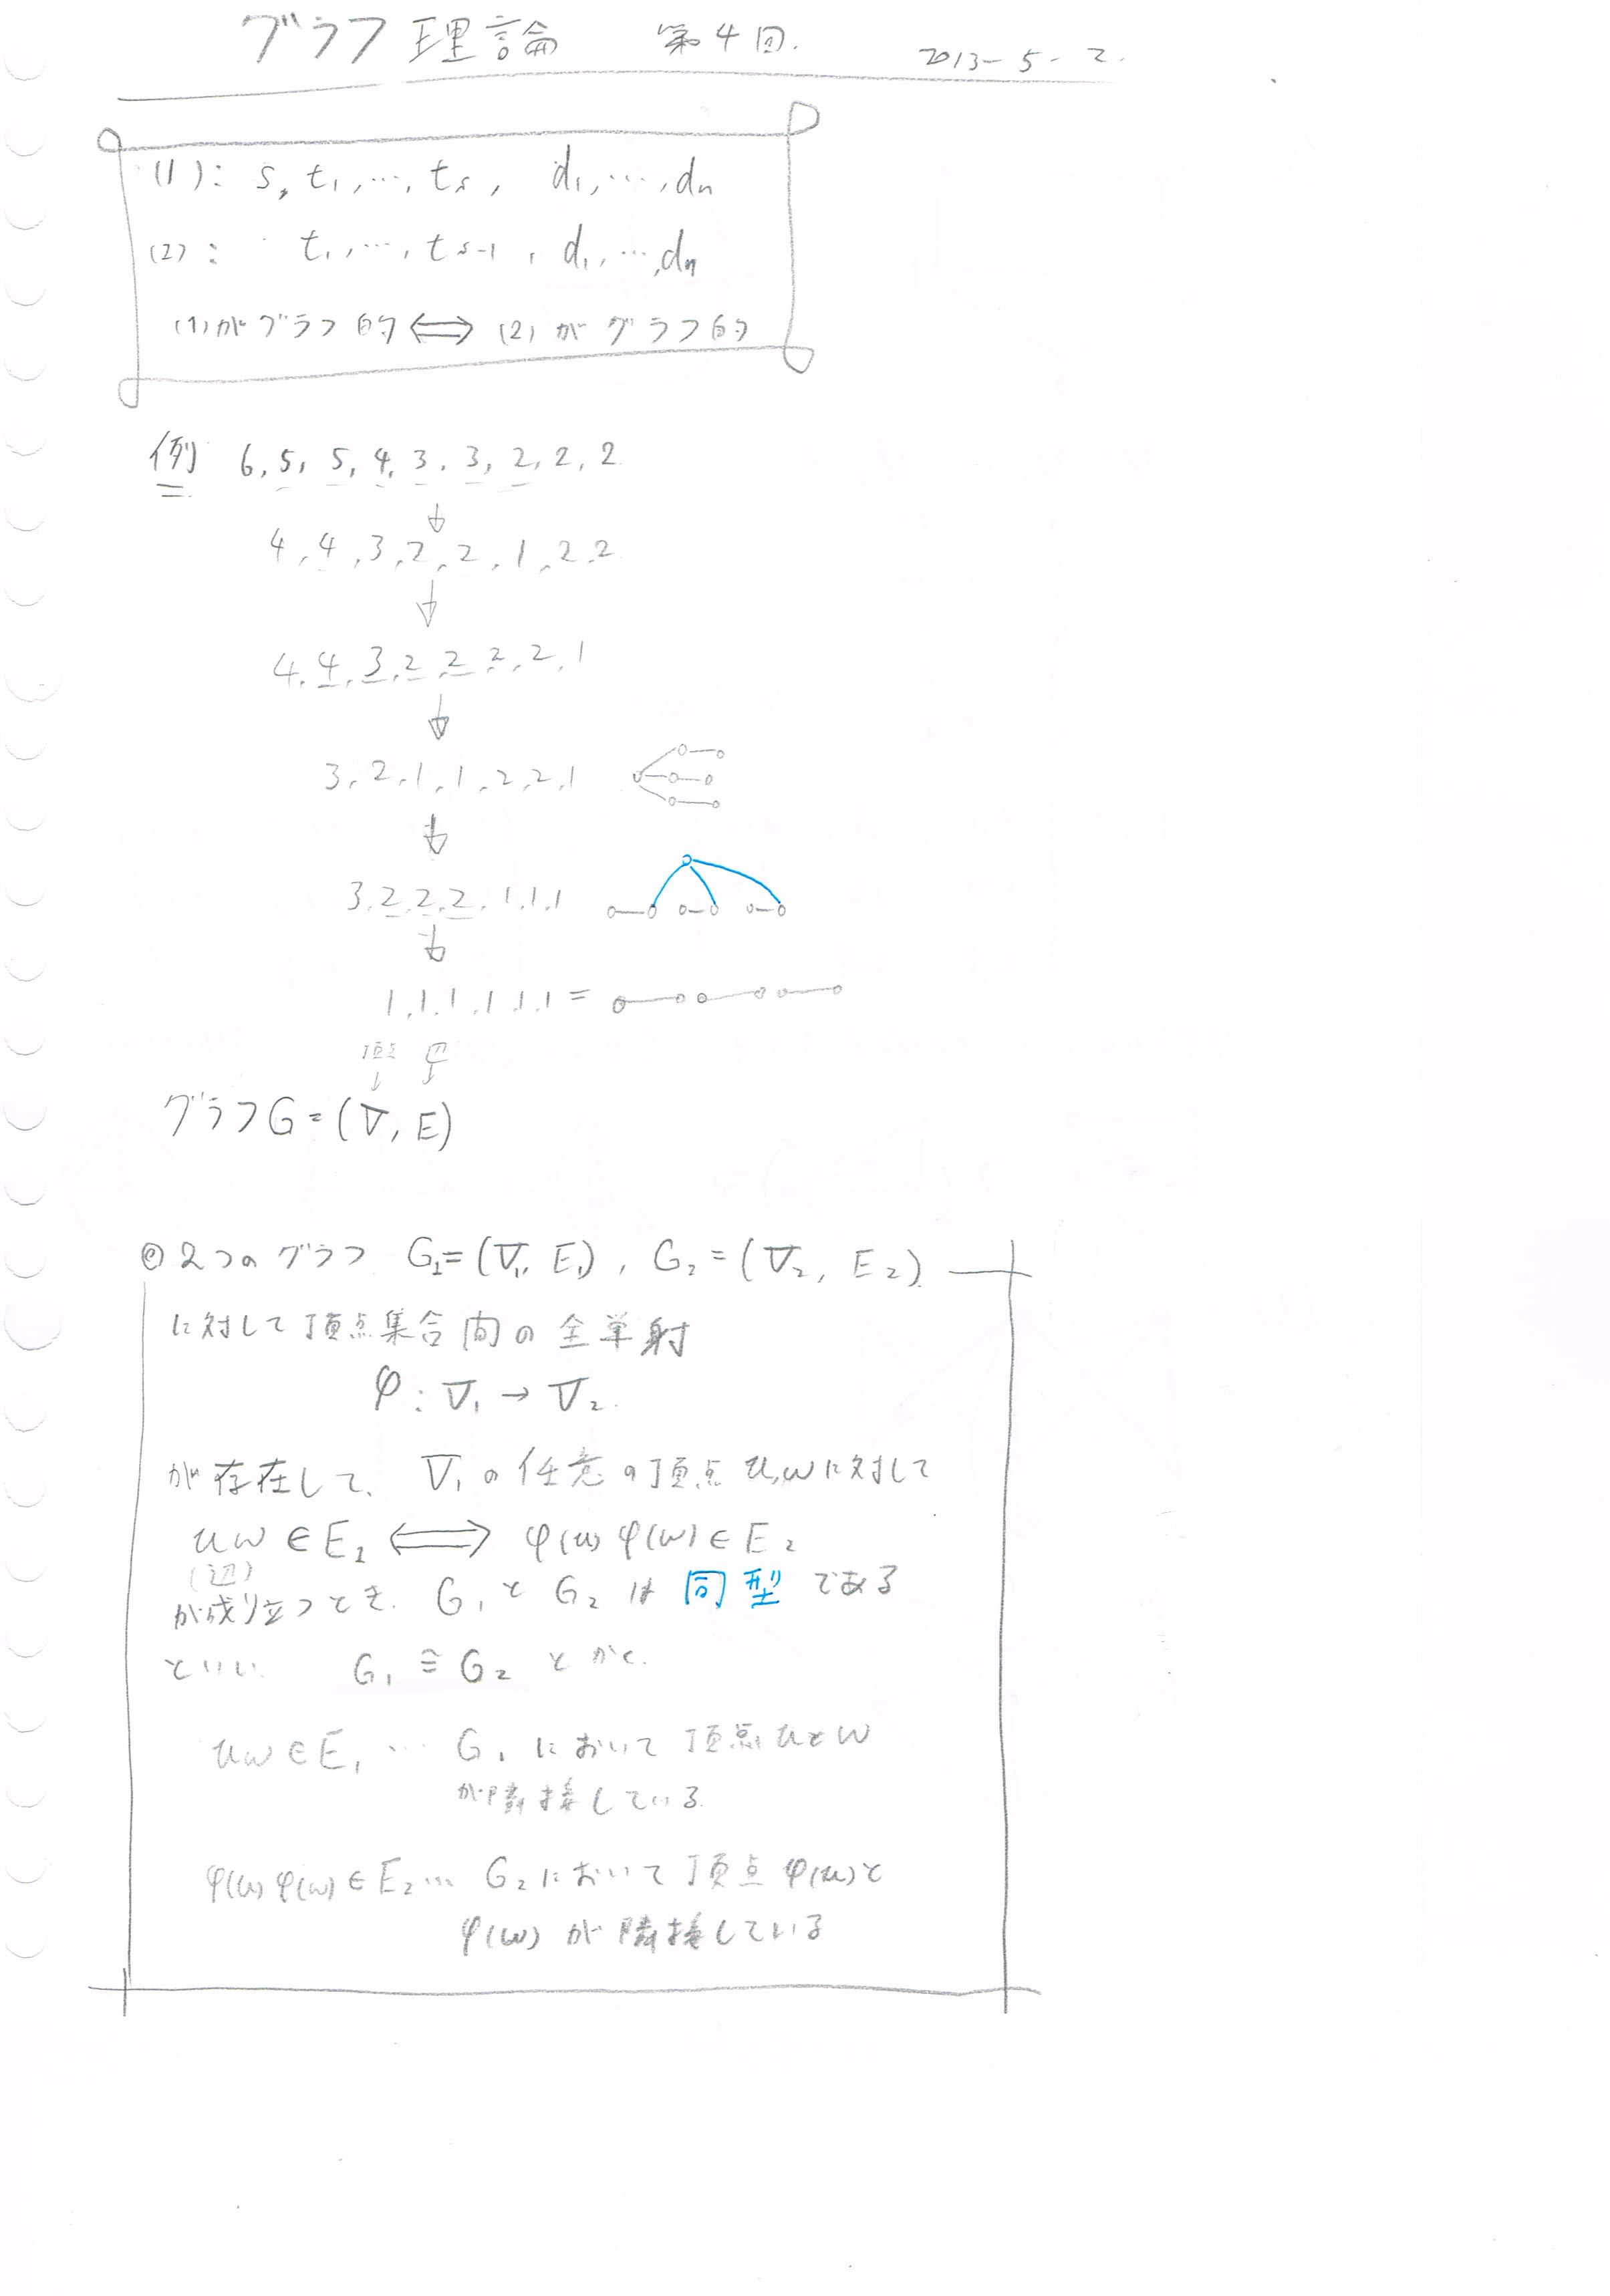 グラフ理論 第4回. 2013-5-2.
(1): s, t₁, …, tₛ, d₁, …, dₙ
(2): t₁, …, tₛ-₁, d₁, …, dₙ
(1)がグラフ的 ⟺ (2)がグラフ的
例 6, 5, 5, 4, 3, 3, 2, 2, 2
↓
4, 4, 3, 2, 2, 1, 2, 2
↓
4, 4, 3, 2, 2, 2, 2, 1
↓
3, 2, 1, 1, 2, 2, 1
↓
3, 2, 2, 2, 1, 1, 1
↓
1, 1, 1, 1, 1, 1 =
頂点 辺
↓ ↓
グラフ G = (V, E)
◎ 2つのグラフ G₁ = (V₁, E₁), G₂ = (V₂, E₂)
に対して頂点集合間の全単射
φ : V₁ → V₂.
が存在して、V₁の任意の頂点 u, wに対して
uw ∈ E₂ ⟺ φ(u) φ(w) ∈ E₂
(辺)
が成り立つとき. G₁とG₂は同型である
といい. G₁ ≅ G₂ とかく.
uw ∈ E₁ … G₁において頂点uとw
が隣接している.
φ(u) φ(w) ∈ E₂ … G₂において頂点φ(u)と
φ(w)が隣接している